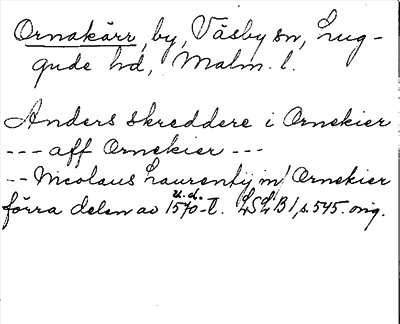 Ornakärr, by, Väsby sn, Lug-
gude hd, Malm. l.
Anders skreddere i Ornekier
--- aff Ornekier ---
-- Nicolaus Laurentij in Ornekier
u.d.
förra delen av 1570-t. LSLB 1, s. 545. orig.